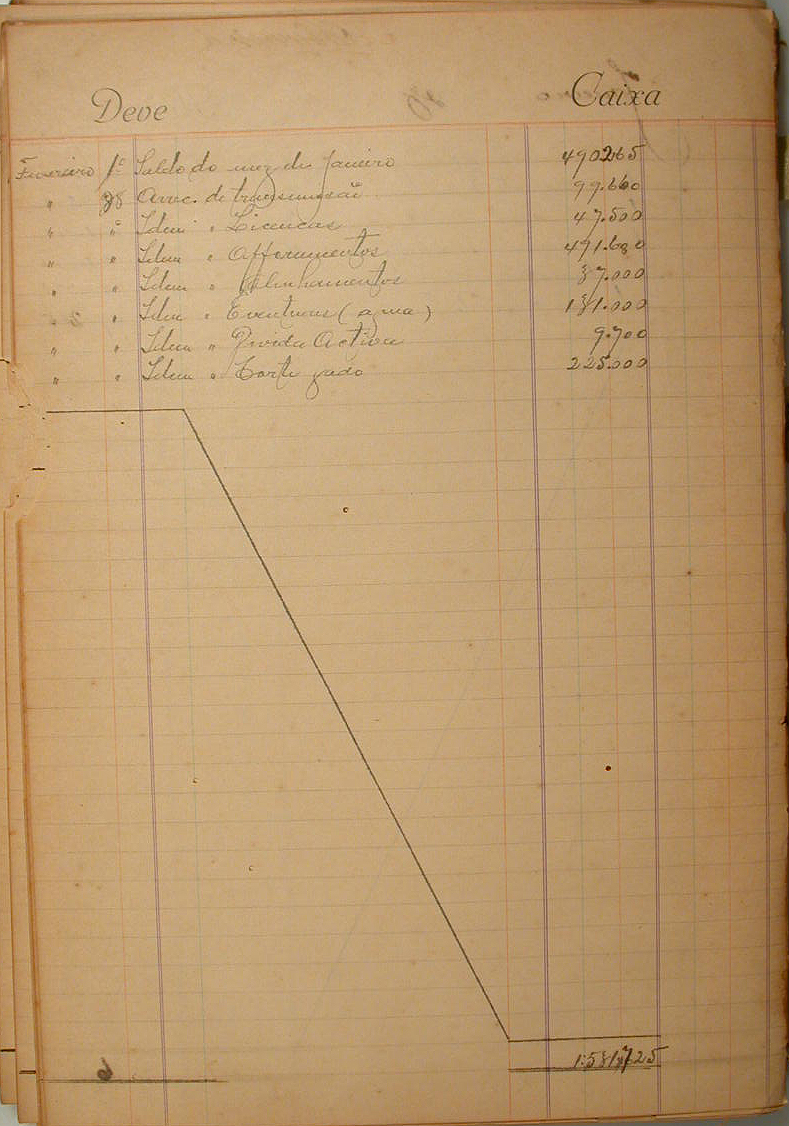 Deve Caixa
Fevereiro 1º Saldo do mez de Janeiro 490265
" 28 Arrec. de transmissão 99.660
" " Idem " Licencas 47.500
" " Idem " Afforamentos 491.600
" " Idem " Alinhamentos 37.000
" " Idem " Eventuaes (agua) 131.000
" " Idem " Divida Activa 9.700
" " Idem " Corte gado 225.000
1:531,725